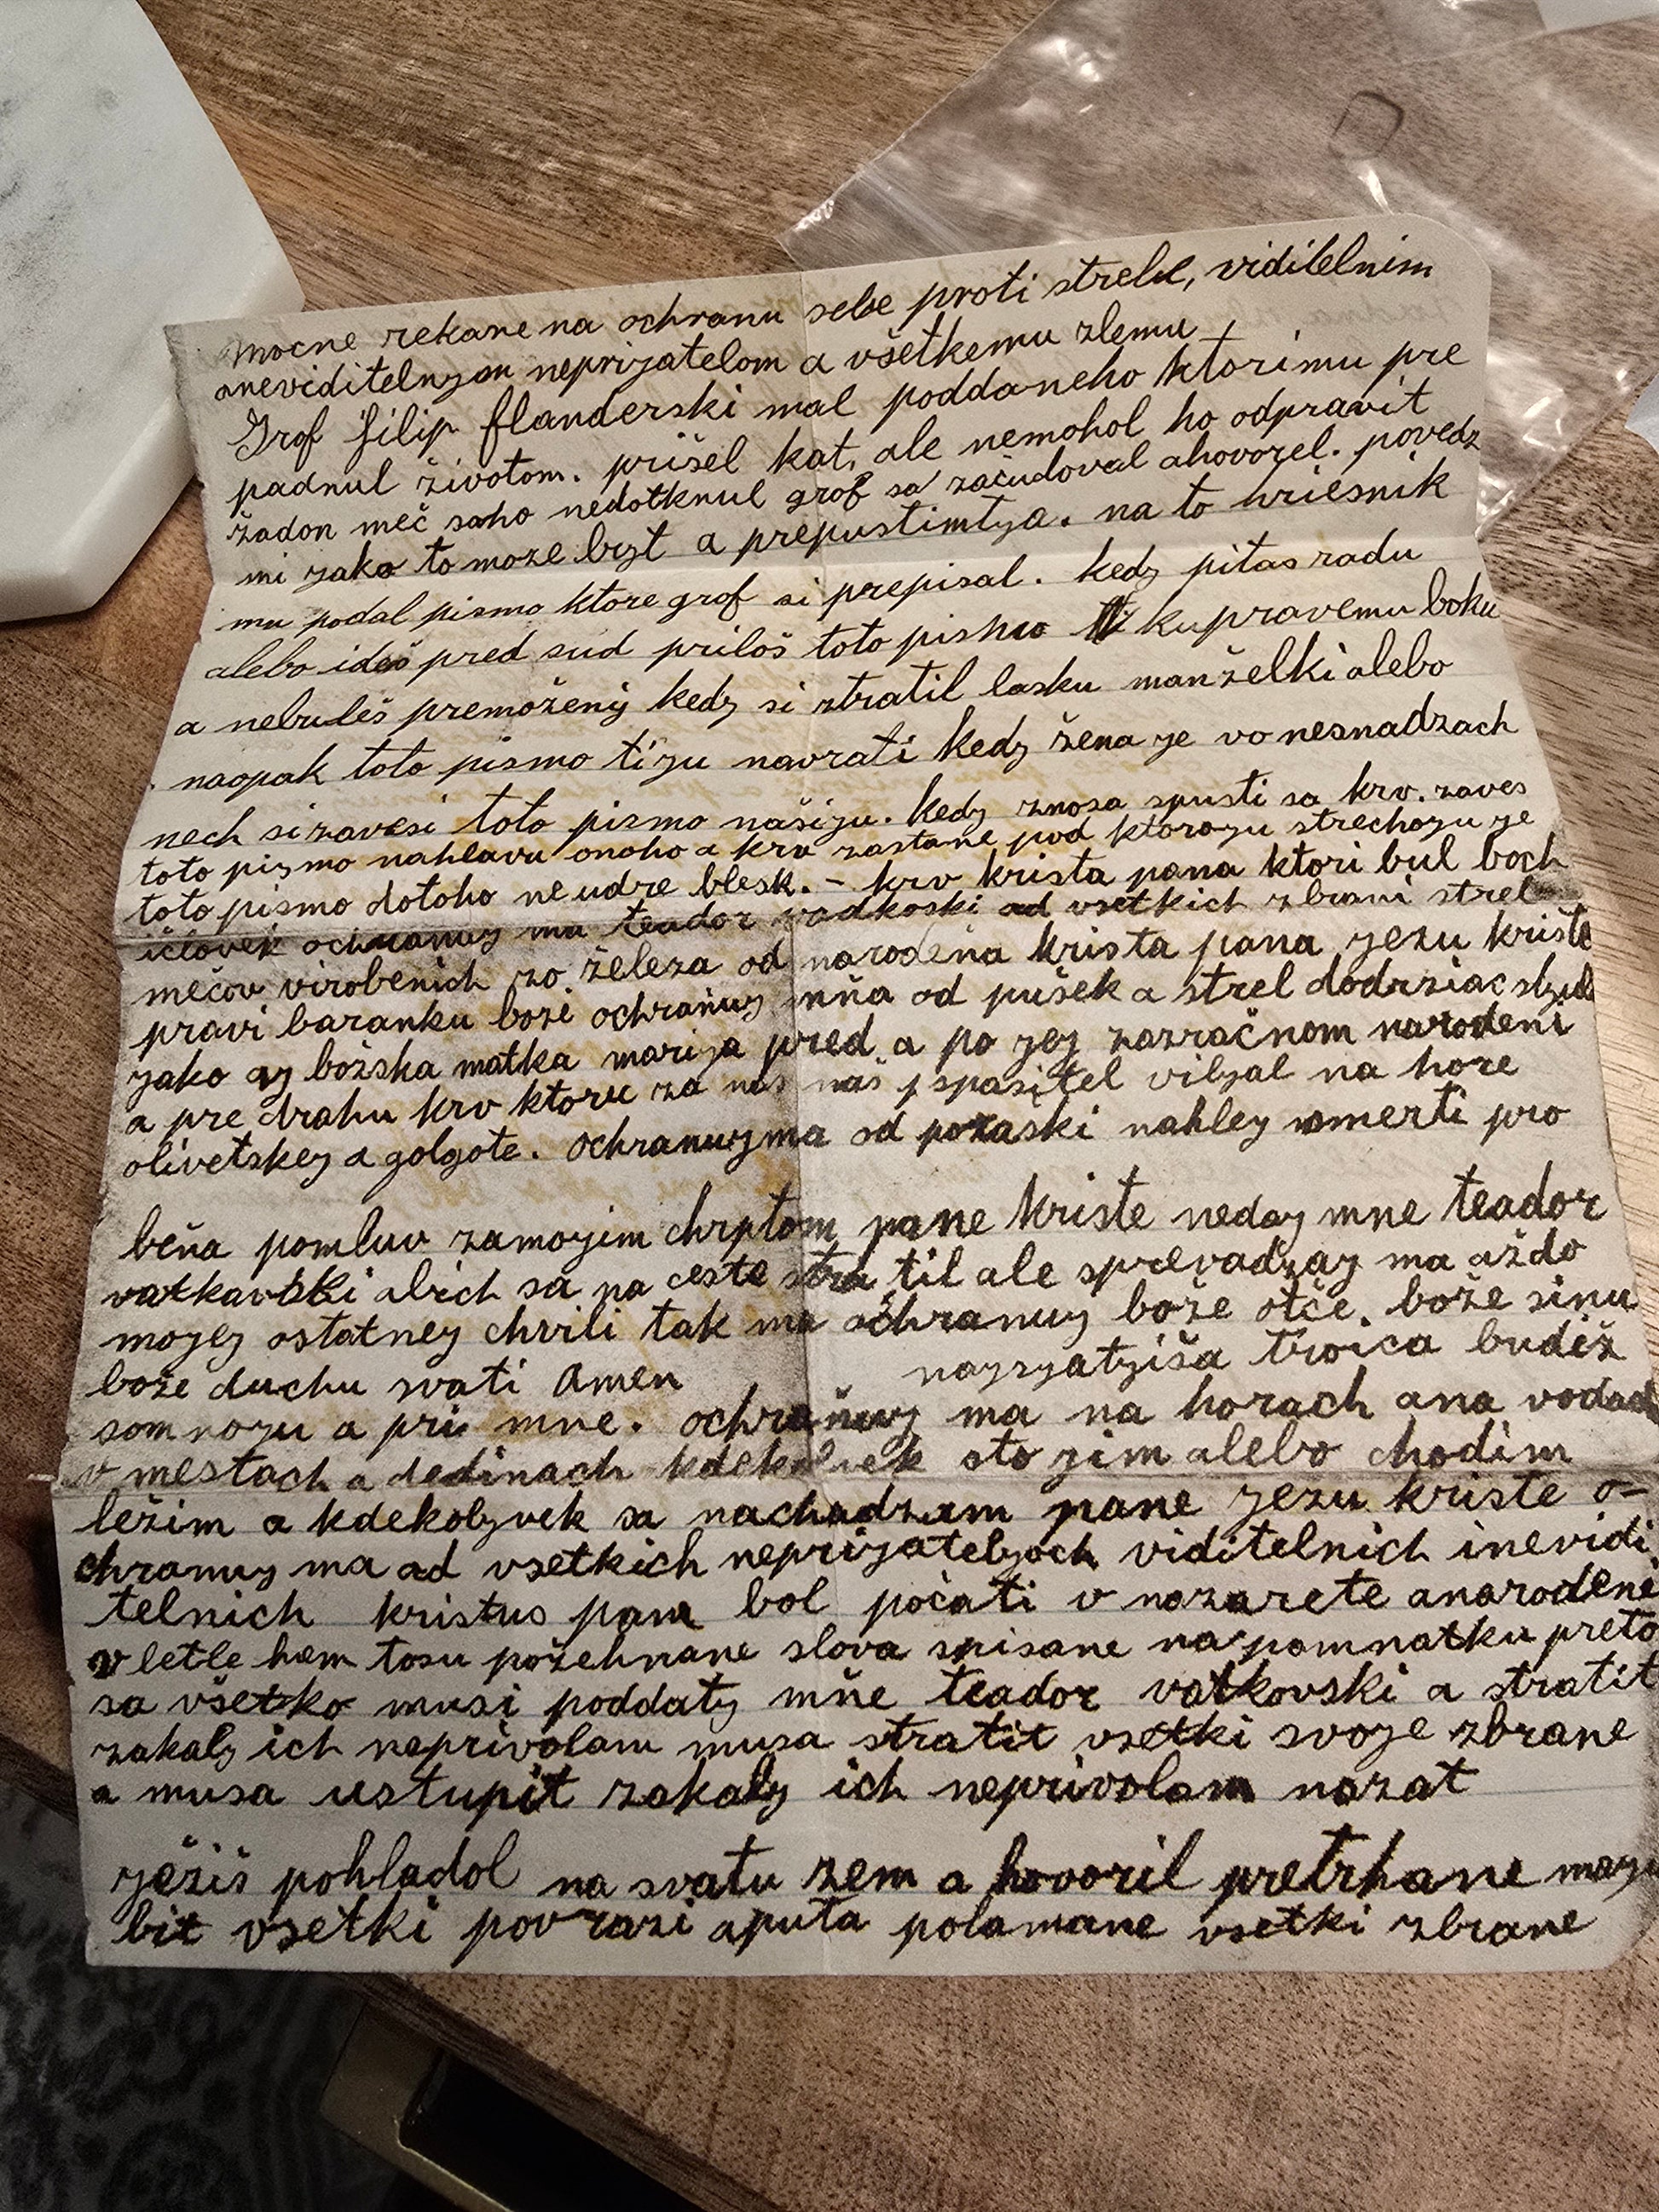 mocne rekane na ochranu sebe proti strele, viditelnim
aneviditelnym neprijatelom a všetkemu zlemu
Grof filip flanderski mal poddaneho ktorimu pre
padnul životom. prišel kat, ale nemohol ho odpravit
žadon meč saho nedotknul grof sa začudoval ahovorel. povedz
mi yako to može byt a prepustimtya. na to hriešnik
mu podal pismo ktore grof si prepisal. kedy pitas radu
alebo ideš pred sud priloš toto pismo ku pravemu boku
a nebudeš premoženy kedy si stratil lasku manželki alebo
naopak toto pismo tiyu navrati kedy žena ye vo nesnadzach
nech sizavesi toto pismo našiyu. kedy znosa spusti sa krv. zaves
toto pismo nahlavu onoho a krv zastane pod ktoroyu strechoyu ye
toto pismo dotoho neudre blesk. - krv krista pana ktori bul boch
ičlovek ochranuy ma teador vadkoski od vsetkich zbrani strel
mečov virobenich zo železa od narodeňa krista pana yezu kriste
pravi baranku boži ochraňuy mňa od pušek a strel dodrziac slyub
yako ay božska matka mariya pred a po yey zazračnom narodeni
a pre drahu krv ktoru za nas naš spasitel vilyal na hore
olivetskey a golgote. ochranuyma od poraski nahley smerti pro
beňa pomluv zamoyim chrptom pane kriste neday mne teador
vatkavski abich sa na ceste stratil ale sprevadzay ma aždo
moyey ostatney chvili tak ma ochranuy bože otče. bože sinu
bože duchu svati Amen nayzyatyiša troica budiž
somnoyu a pri mne. ochraňuy ma na horach ana vodach
v mestach a dedinach kdekolvek stoyim alebo chodim
ležim a kdekolyvek sa nachadzam pane yezu kriste o-
chranuy ma od vsetkich nepriyatelyoch viditelnich inevidi
telnich kristus pam bol počati v nazarete anarodeni
v letle hem tosu požehnane slova spisane na pomnatku preto
sa všetko musi poddaty mňe teador vatkovski a stratit
zakaly ich neprivolam musa stratit vsetki svoye zbrane
a musa ustupit zakaly ich neprivolam nazat
yežiš pohladol na svatu zem a hovoril pretrhane mayu
bit vsetki povrazi aputa polamane vsetki zbrane